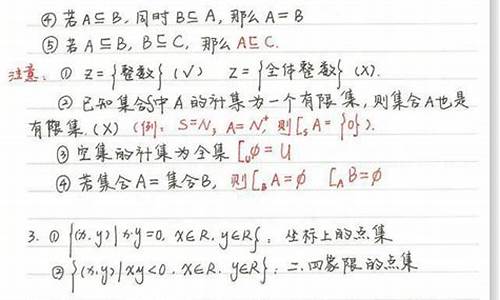 ④ 若 A⊆B, 同时 B⊆A, 那么 A=B
⑤ 若 A⊆B, B⊆C, 那么 A⊆C.
注意: ① Z={整数} (√) Z={全体整数} (X).
② 已知集合S中 A 的补集为一个有限集, 则集合A也是
有限集. (X) (例: S=N, A=N⁺, 则∁ₛA={0}).
③ 空集的补集为全集 ∁ᵤφ=U
④ 若集合A=集合B, 则∁_BA=φ ∁_AB=φ
3. ① {(x.y)|x·y=0, x∈R, y∈R}: 坐标上的点集
② {(x.y)|xy<0. x∈R. y∈R}: 二.四象限的点集